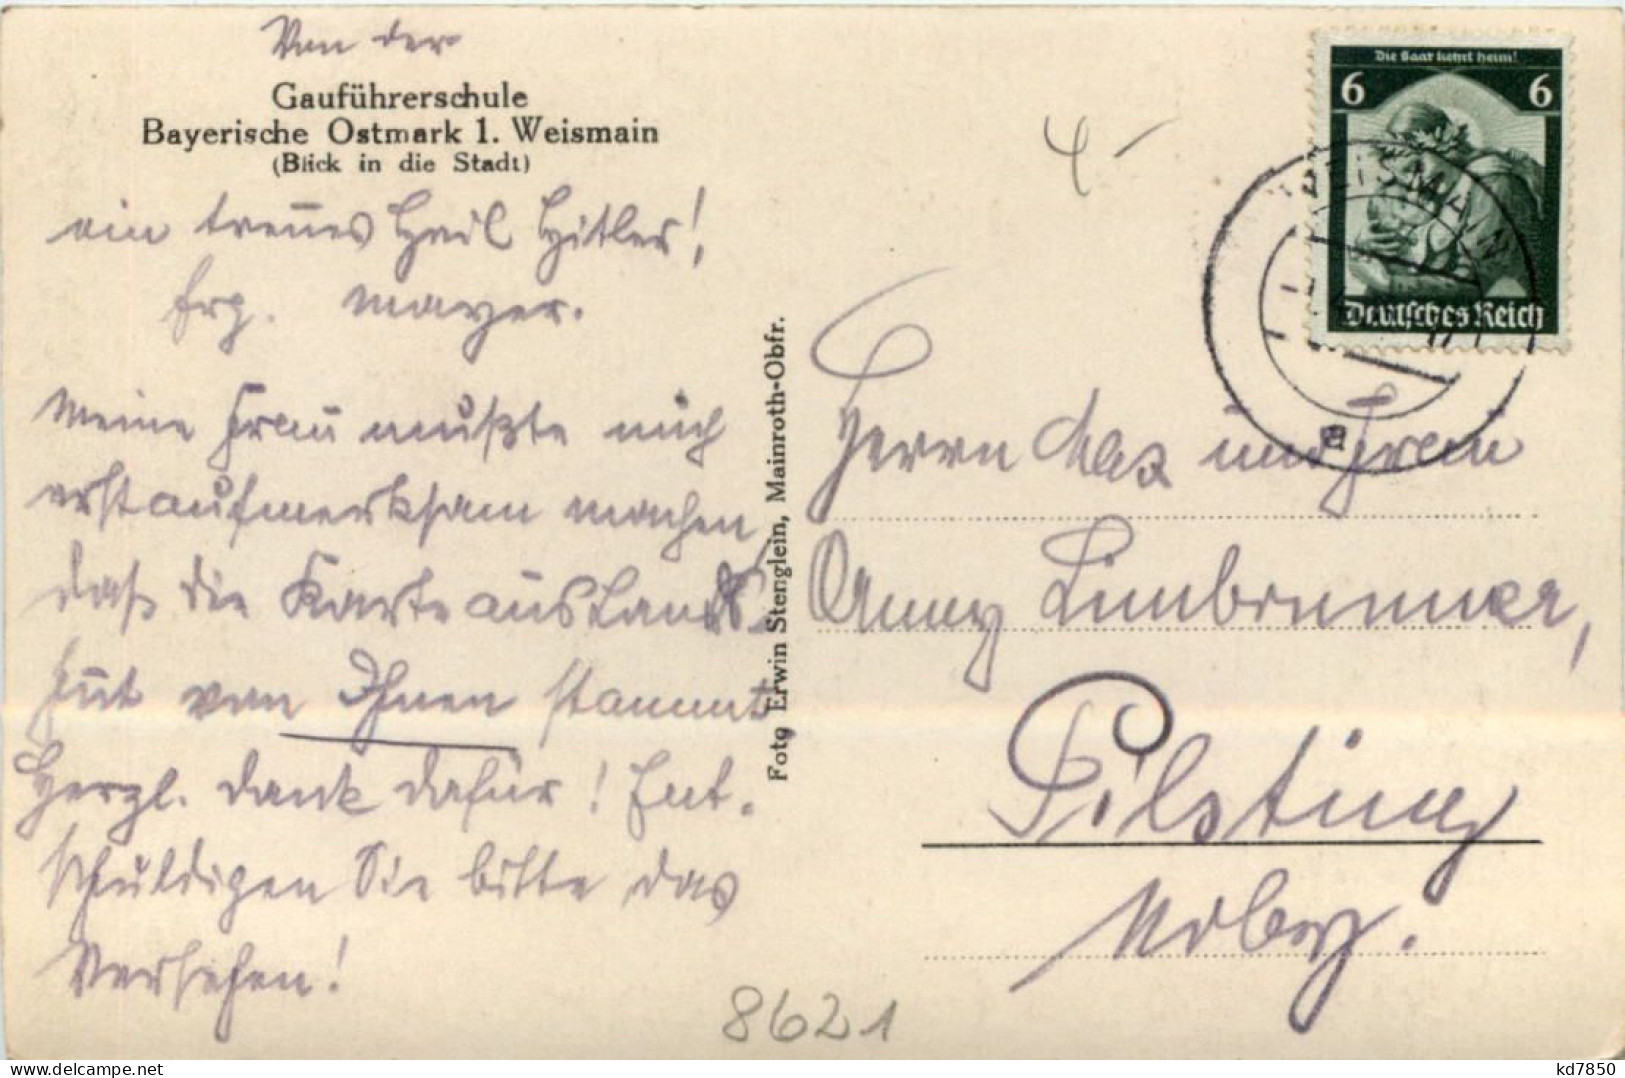 Von der
Gauführerschule
Bayerische Ostmark 1. Weismain
(Blick in die Stadt)
ein treues Heil Hitler!
Erg. Mayer.
Meine Frau mußte mich
erst aufmerksam machen,
daß die Karte aus Lands-
hut von Ihnen stammt
Herzl. Dank dafür! Ent-
schuldigen Sie bitte das
Versehen!
Foto Erwin Stenglein, Mainroth-Obfr.
4.-
Die Saar kehrt heim!
6 6
Deutsches Reich
WEISMAIN
a
Herrn Max und Frau
Anny Limbrunner,
Pilsting
Ndby.
8621
kd7850